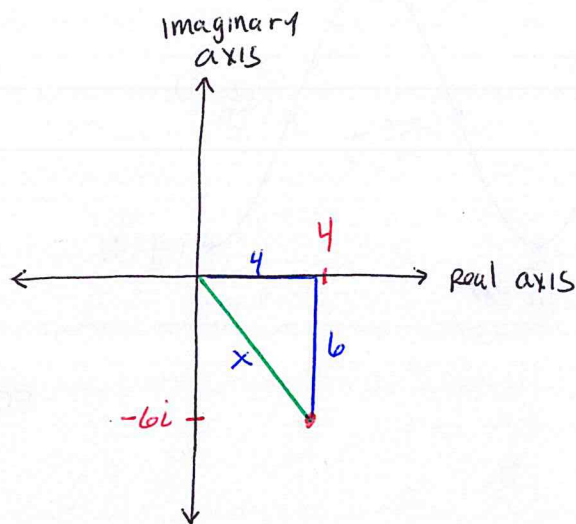 Imaginary
axis
4
4
Real axis
6
x
-6i